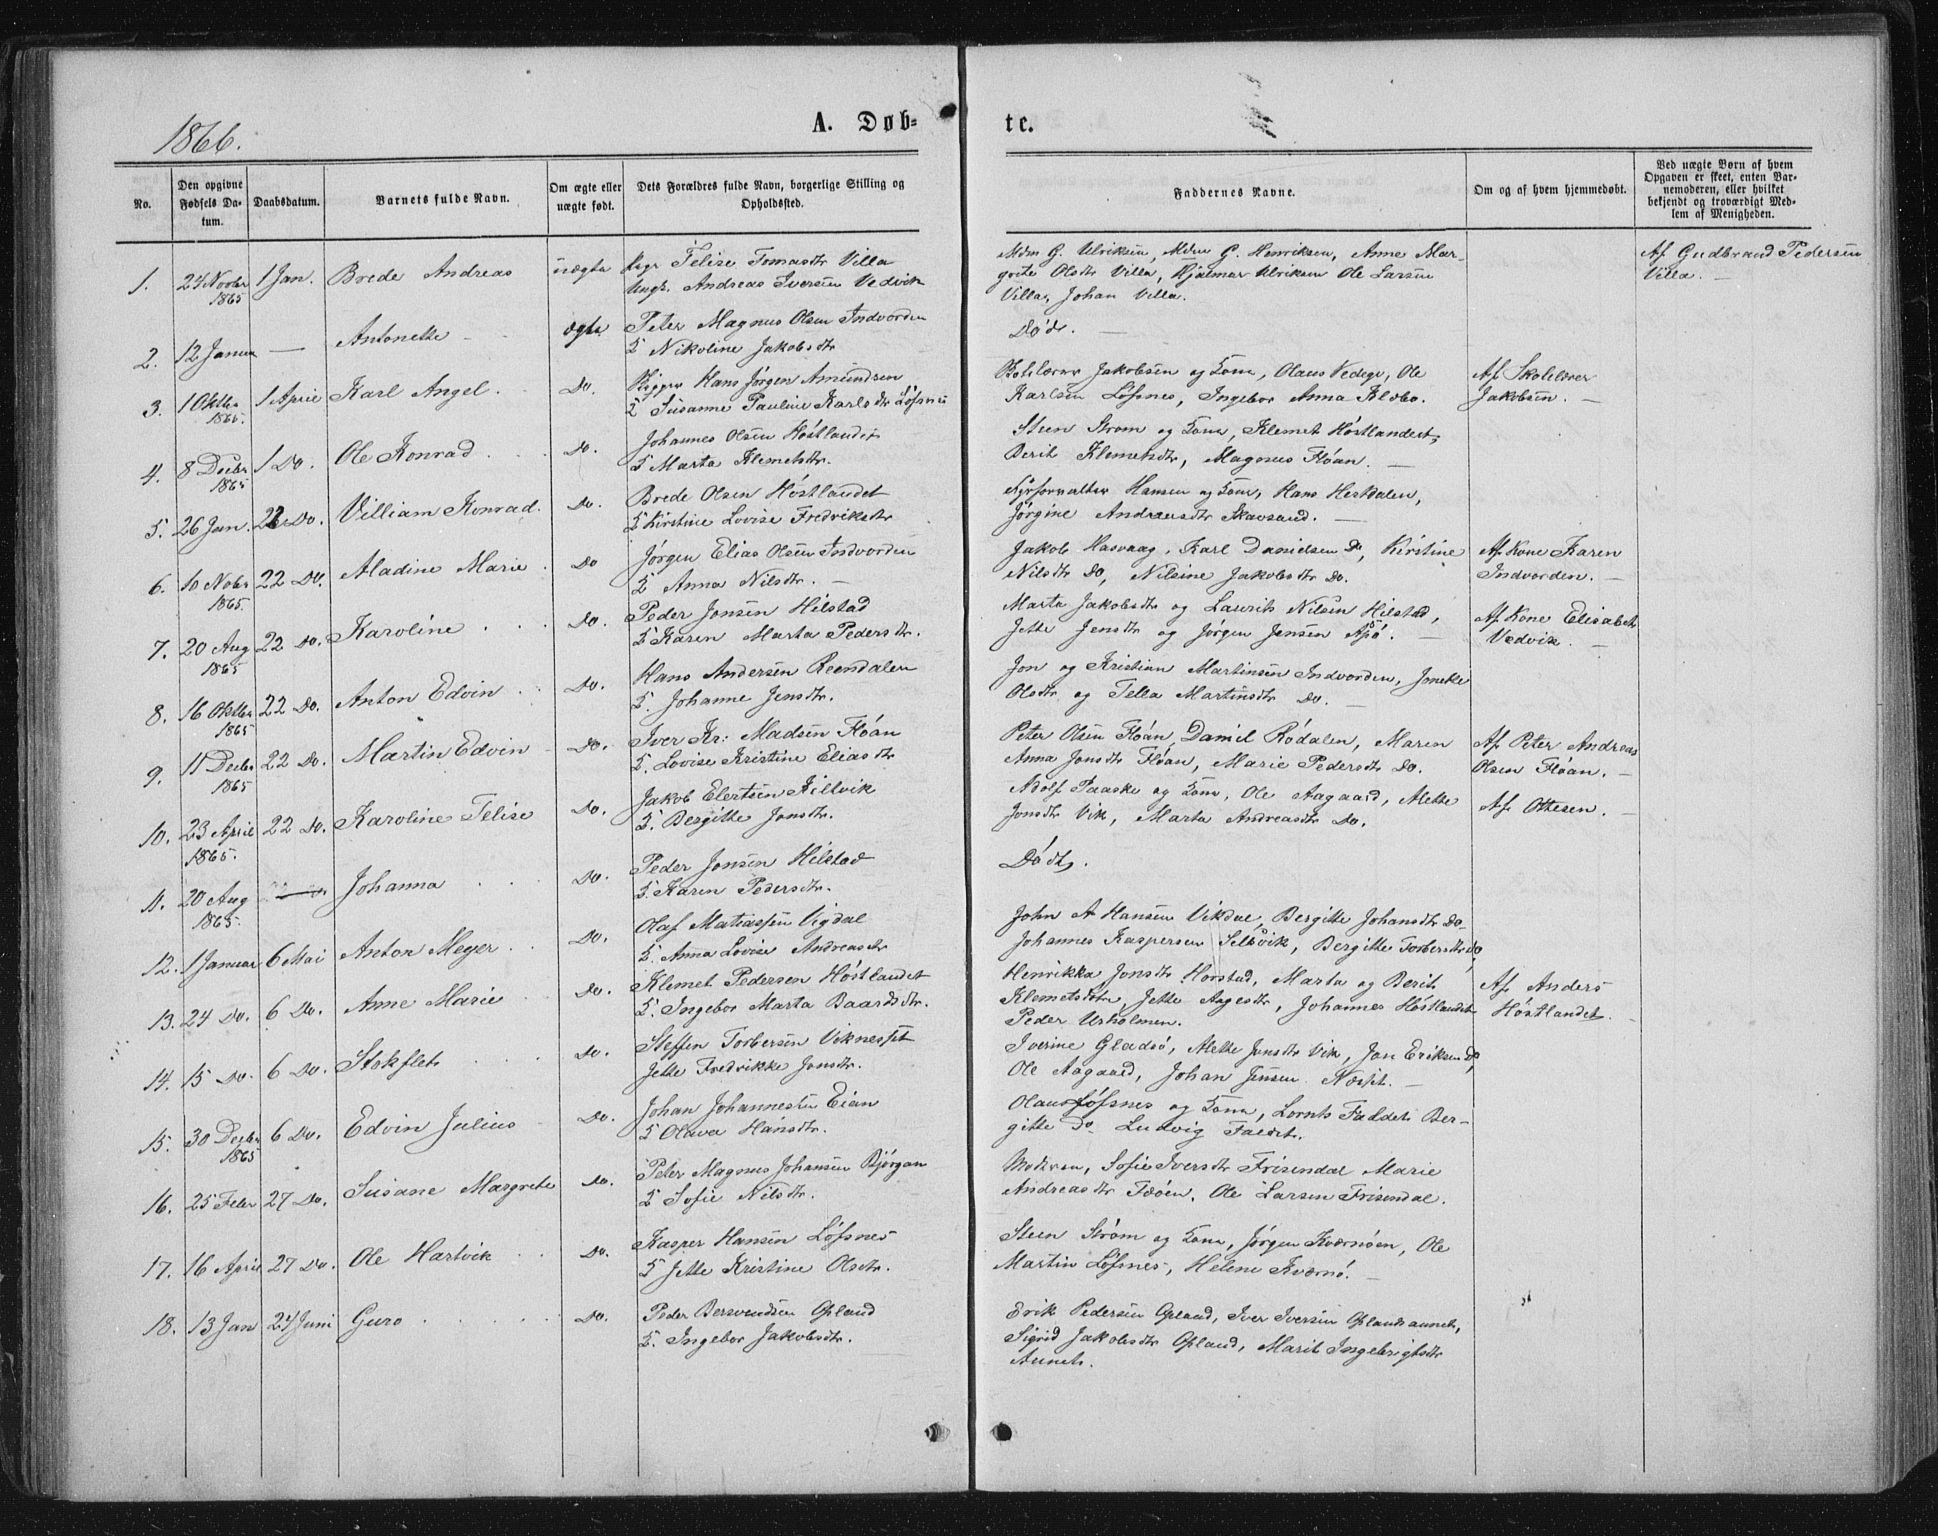 1866.
A. Døb-
te.
No.
Den opgivne
Fødsels Da-
tum.
Daabsdatum.
Barnets fulde Navn.
Om ægte eller
uægte født.
Dets Forældres fulde Navn, borgerlige Stilling og
Opholdssted.
Faddernes Navne.
Om og af hvem hjemmedøbt.
Ved uægte Børn af hvem
Opgaven er skeet, enten Bar-
nemoderen, eller hvilket
bekjendt og troværdigt Med-
lem af Menigheden.
1. 24 Novbr 1 Jan. Brede Andreas uægte Felise Tomasdtr Villa
1865 Ungk. Andreas Iversen Vedvik
Mdm G. Ulriksen, Mdm G. Henriksen, Anne Mar-
grete Olsdtr Villa, Hjalmar Ulriksen Ole Larsen
Villa, Johan Villa.
Af Gudbrand Pedersen
Villa. —
2. 12 Januar — Antonette ægte Peter Magnus Olsen Indvorden
Nikoline Jakobsdtr
Død. —
3. 1 Oktbr 1 April Karl Angel. Do. Hans Jørgen Amundsen
1865. Susanne Pauline Karlsdtr Løfsnes
Jakobsen og Kone, Olaus Vedege, Ole
Karlsen Løfsnes, Ingebor Anna Klebo.
Af Skolelærer
Jakobsen. —
4. 8 Decbr 1 Do. Ole Konrad Do. Johannes Olsen Høstlandet
1865 Marta Klemetsdtr.
Steen Strøm og Kone, Klemet Høstlandet,
Berit Klemetsdtr, Magnus Fløan. —
5. 26 Jan. 22 Do. Villiam Konrad. Do. Brede Olsen Høstlandet
Kirstine Lovise Fredriksdtr
Fyrforvalter Hansen og Kone, Hans Heskdalen,
Jørgine Andreasdtr Skavsand. —
6. 10 Nobr 22 Do. Aladine Marie Do Jørgen Elias Olsen Indvorden
1865. Anna Nilsdtr. —
Jakob Hasvaag, Karl Danielsen Do, Kirstine
Nilsdtr Do, Nilsine Jakobsdtr Do.
Af Kone Karen
Indvorden. —
7. 20 Aug 22 Do. Karoline Do. Peder Jonsen Hilstad
1865 Karen Marta Pedersdtr.
Marta Jakobsdtr og Laurits Nilsen Hilstad,
Jette Jensdtr og Jørgen Jensen Apø. —
Af Kone Elisabet
Vedvik. —
8. 16 Oktbr 22 Do. Anton Edvin Do. Hans Andersen Reendalen
1865 Johanne Jensdtr.
Jon og Kristian Martinsen Indvorden,
Olsdtr og Tella Martinsdtr Do. —
9. 11 Decbr 22 Do. Martin Edvin Do. Iver Kr: Madsen Fløan
1865 Lovise Kristine Eliasdtr
Peter Olsen Fløan, Daniel Rødalen, Maren
Anna Jonsdtr Fløan, Marie Pedersdtr Do.
Af Peter Andreas
Olsen Fløan. —
10. 23 April 22 Do. Karoline Felise Do. Jakob Elertsen
1865. Bergitte Jonsdtr.
Adolf Paaske og Kone, Ole Aagaard, Mette
Jonsdtr Vik, Marta Andreasdtr Do.
Af Ottesen. —
11. 20 Aug Johanna Do. Peder Jonsen Hilstad
1865. Karen Pedersdtr.
Død,
12. 1 Januar 6 Mai Anton Meyer Do. Olaf Matiassen Vigdal
Anna Lovise Andreasdtr
John A Hansen Vikdal, Bergitte Johansdtr Do
Johannes Kaspersen Selsvik, Bergitte Torbersdtr Do,
13. 24 Do. 6 Do. Anne Marie Do. Klemet Pedersen Høstlandet
Ingebor Marta Baardsdtr.
Henrikka Jonsdtr Horstad, Marta og Berit
Klemetsdtr, Jette Aagesdtr, Johannes Høstlandet
Peder Urholmen.
Af Anders
Høstlandet.
14. 15 Do. 6 Do. Stokflet Do. Steffen Torbersen Viknesset
Jette Fredrikke Jonsdtr.
Iverine Gladsø, Mette Jonsdtr Vik, Jon Eriksen Do,
Ole Aagaard, Johan Jensen Næsset. —
15. 30 Decbr 6 Do. Edvin Julius Do. Johan Johannesen Eian
1865 Olava Hansdtr.
Olaus Løfsnes og Kone, Lornts Faldet, Ber-
gitte Do Ludvig Faldet.
16. 25 Febr 27 Do. Susane Margrete Do. Peter Magnus Johansen Bjørgan
Sofie Nilsdtr.
Moderen, Sofie Iversdtr Frisendal Marie
Andreasdtr Ole Larsen Frisendal.
17. 16 April 27 Do. Ole Hartvik Do. Kasper Hansen Løfsnes
Jette Kristine Olsdtr.
Steen Strøm og Kone, Jørgen Kværnøen, Ole
Martin Løfsnes, Helene Kværnø. —
18. 13 Jan 24 Juni Guro Do. Peder Bersvendsen Opland
Ingebor Jakobsdtr.
Erik Pedersen Opland, Iver Iversen Oplandsaunet,
Sigrid Jakobsdtr Opland, Marit Ingebrigtsdtr
Aunet.